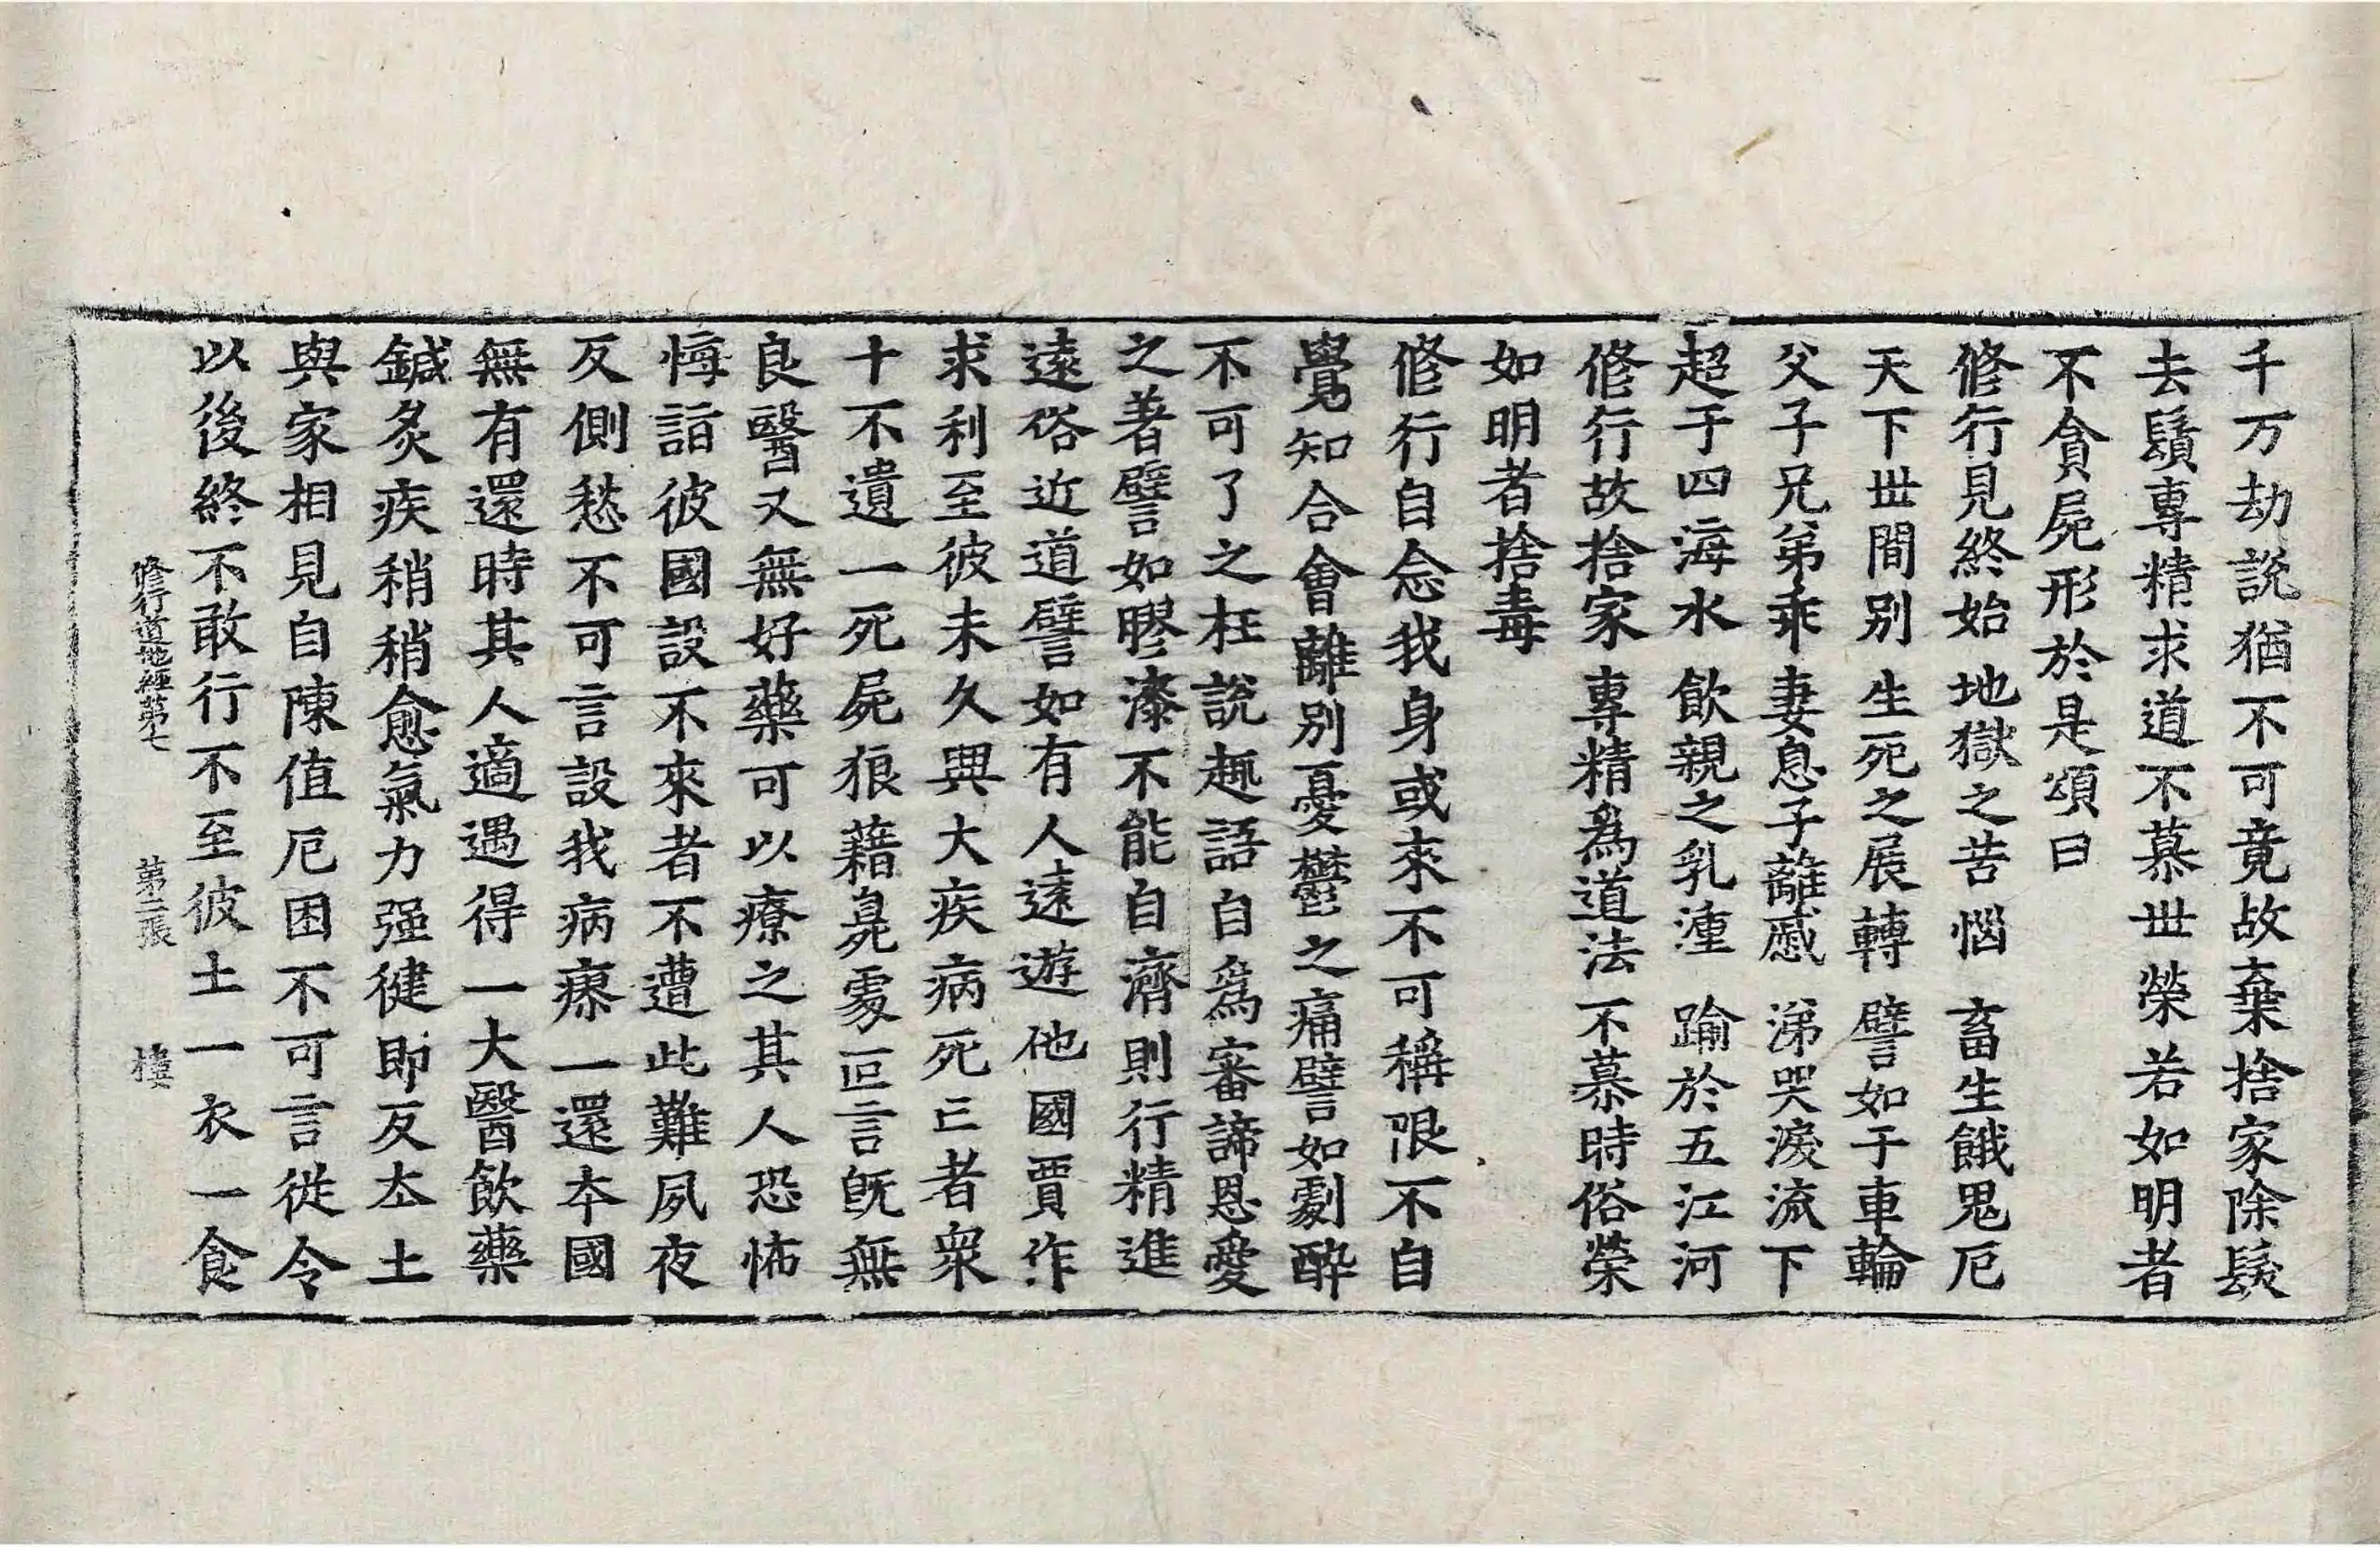 千万劫說猶不可竟故棄捨家除髮
去鬚專精求道不慕丗榮若如明者
不貪屍形於是頌曰
修行見終始 地獄之苦惱 畜生餓鬼厄
天下丗間別 生死之展轉 譬如于車輪
父子兄弟乖 妻息子離慼 涕哭淚流下
超于四海水 飲親之乳湩 踰於五江河
修行故捨家 專精爲道法 不慕時俗榮
如明者捨毒
修行自念我身或來不可稱限不自
覺知合會離別憂鬱之痛譬如劇醉
不可了之枉說趣語自爲審諦恩愛
之著譬如膠漆不能自濟則行精進
遠俗近道譬如有人遠遊他國賈作
求利至彼未久興大疾病死亡者衆
十不遺一死屍狼藉臭處叵言旣無
良醫又無好藥可以療之其人恐怖
悔詣彼國設不來者不遭此難夙夜
反側愁不可言設我病瘳一還本國
無有還時其人適遇得一大醫飲藥
鍼灸疾稍稍愈氣力强健即反本土
與家相見自陳值厄困不可言從今
以後終不敢行不至彼土一衣一食
修行道地經第七 第二張 樓